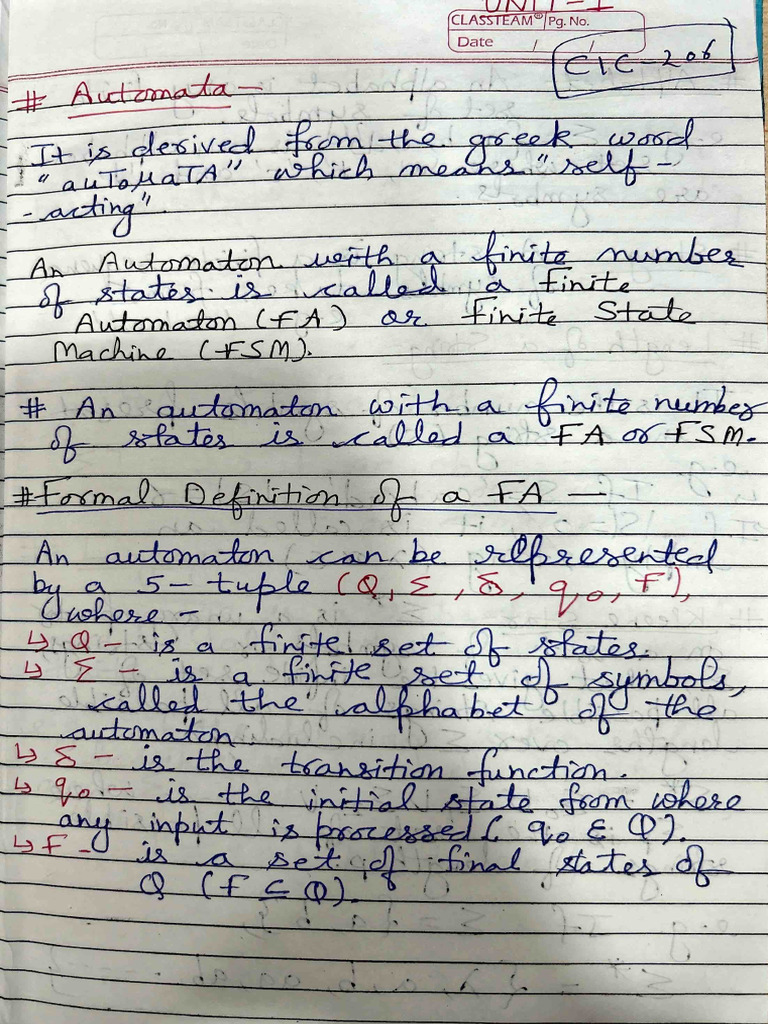 UNIT-I
CLASSTEAM® Pg. No.
Date / /
CIC-206
# Automata –
It is derived from the greek word
"auToMaTA" which means "self-
-acting".
An Automaton with a finite number
of states is called a Finite
Automaton (FA) or Finite State
Machine (FSM).
# An automaton with a finite number
of states is called a FA or FSM.
#Formal Definition of a FA —
An automaton can be represented
by a 5-tuple (Q, Σ, δ, q0, F),
where -
↳ Q - is a finite set of states.
↳ Σ - is a finite set of symbols,
called the alphabet of the
automaton.
↳ δ - is the transition function.
↳ q0 - is the initial state from where
any input is processed ( q0 ∈ Q).
↳ F - is a set of final states of
Q (F ⊆ Q).